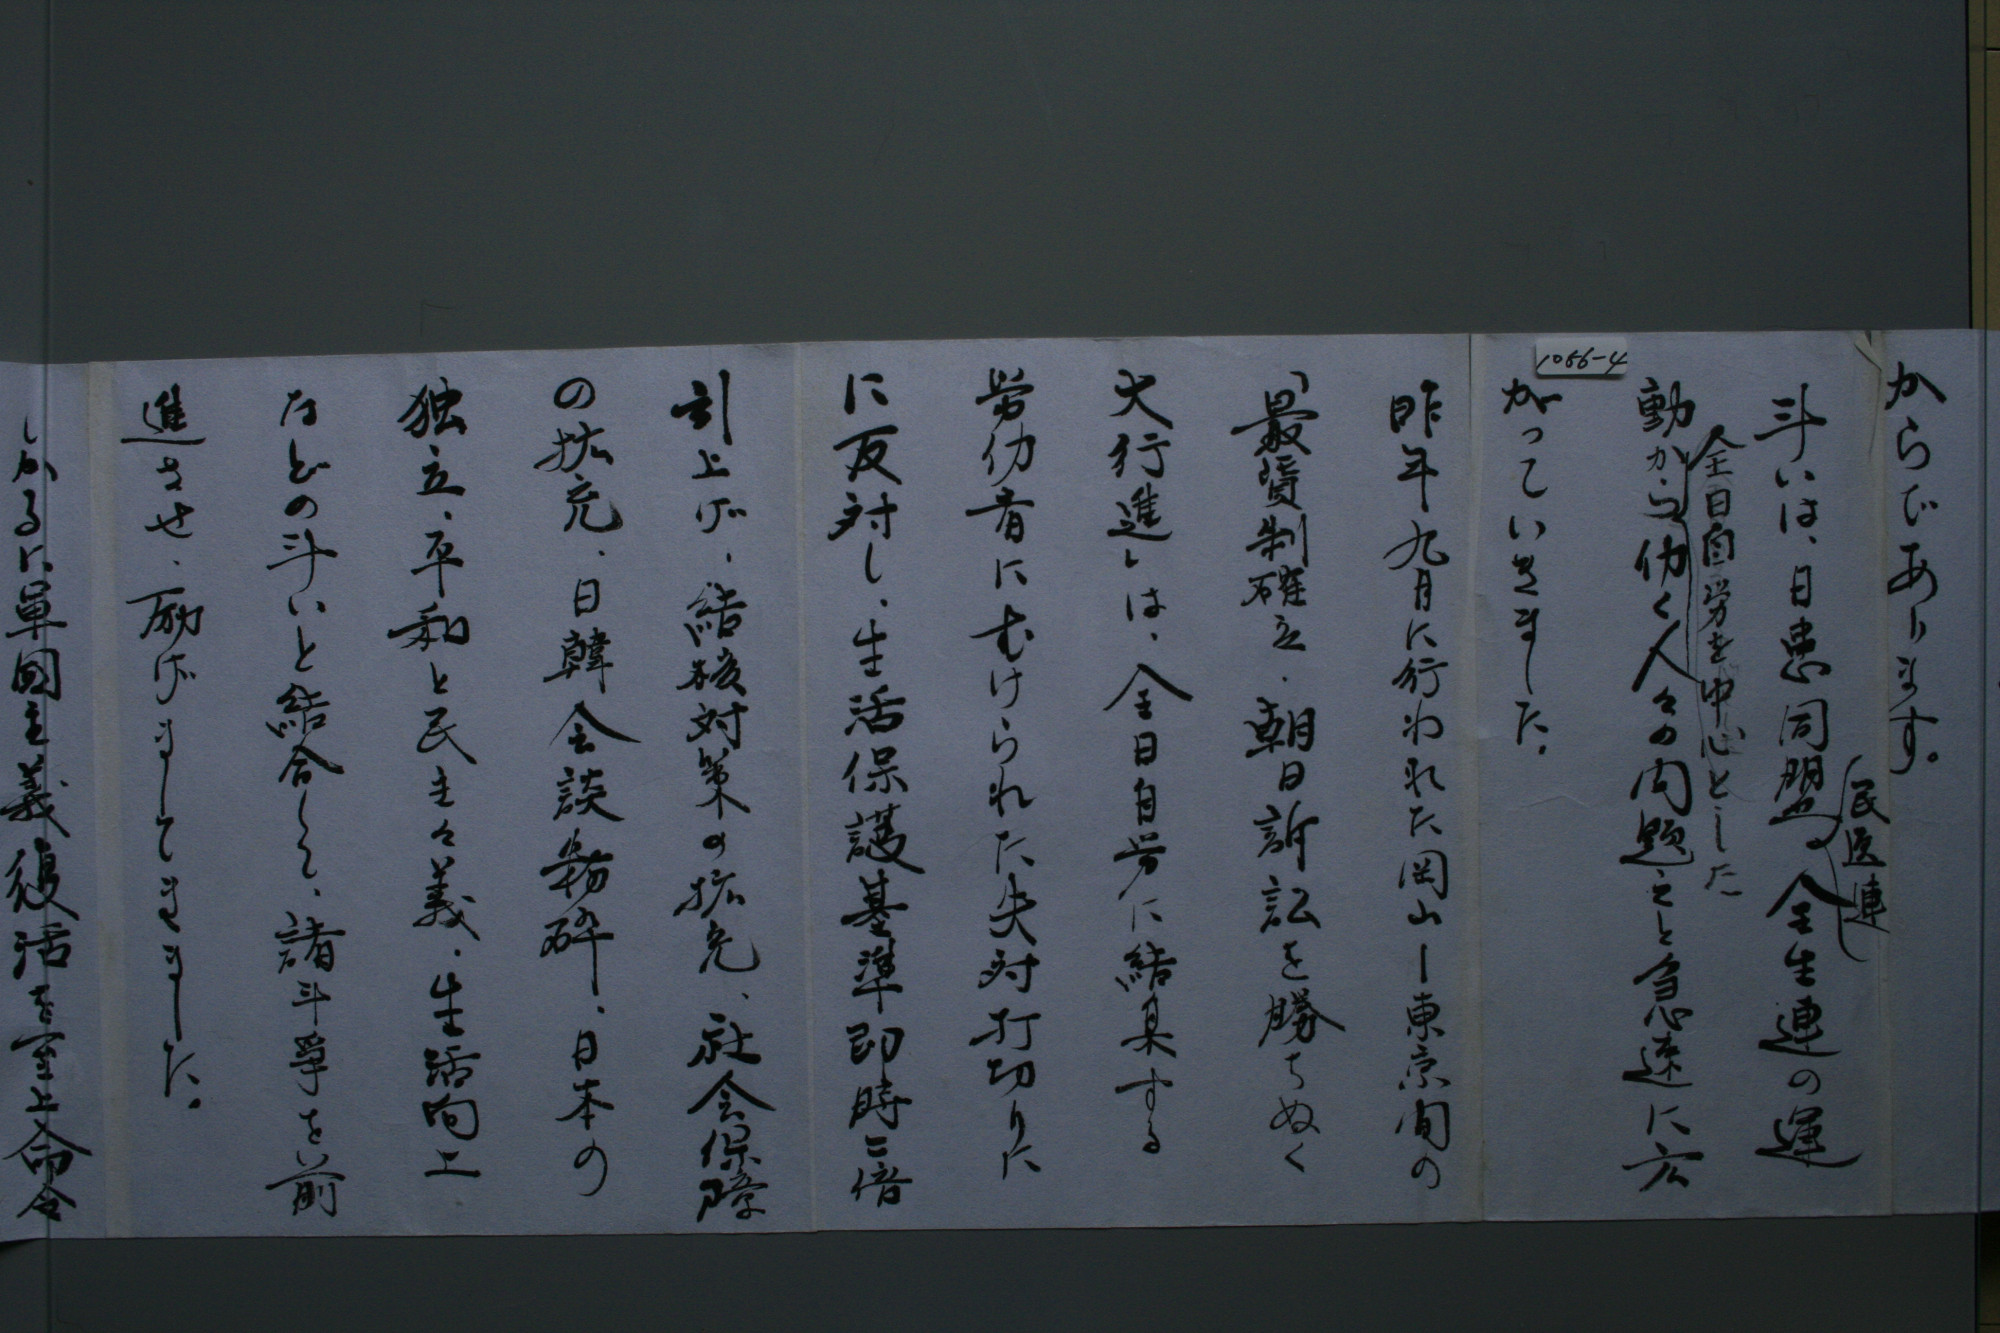 からであります。
斗いは、日患同盟、全生連の運
民医連
全日自労を中心とした
動から仂く人々の内題えと急速に広
がっていきました。
1066-4
昨年九月に行われた岡山ー東京間の
「最賃制確立、朝日訴訟を勝ちぬく
大行進」は、全日自労に結集する
労仂者にむけられた失対打切りに
に反対し、生活保護基準即時二倍
引上げ、結核対策の拡充、社会保障
の拡充、日韓会談粉砕、日本の
独立、平和と民主々義、生活向上
などの斗いと結合して、諸斗争を前
進させ、励げましてきました。
しかるに軍国主義復活を至上命令